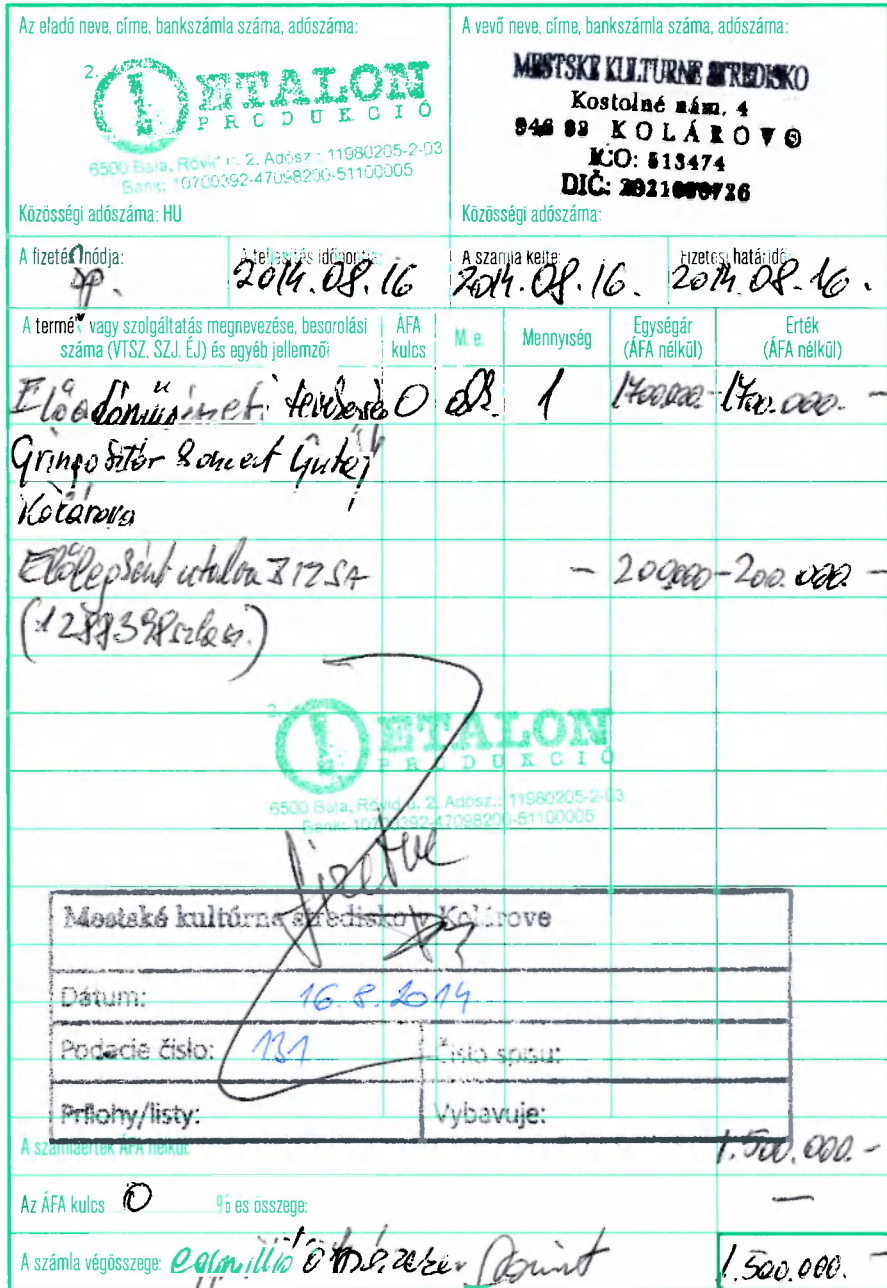 Az eladó neve, címe, bankszámla száma, adószáma:
2.
ETALON
PRODUKCIÓ
6500 Baja, Rövid u. 2. Adósz.: 11980205-2-03
Bank: 10700392-47098200-51100005
Közösségi adószáma: HU
A vevő neve, címe, bankszámla száma, adószáma:
MESTSKÉ KULTÚRNE STREDISKO
Kostolné nám. 4
946 03 KOLÁROVO
IČO: 513474
DIČ:
Közösségi adószáma:
A fizetés módja:
kp.
A teljesítés időpontja:
2014.08.16
A számla kelte:
2014.08.16.
Fizetési határidő:
2014.08.16.
A termék vagy szolgáltatás megnevezése, besorolási
száma (VTSZ, SZJ, ÉJ) és egyéb jellemzői
ÁFA
kulcs
M. e.
Mennyiség
Egységár
(ÁFA nélkül)
Érték
(ÁFA nélkül)
Előadóművészeti 0 1 1700.000.- 1700.000.-
Gringo Sztár Koncert Gúta
Kolárovo
Előlegként utalva - 200.000 - 200.000 -
2.
ETALON
PRODUKCIÓ
6500 Baja, Rövid u. 2. Adósz.: 11980205-2-03
Bank: 10700392-47098200-51100005
fizetve
Mestské kultúrne stredisko v Kolárove
Dátum: 16.8.2014
Podacie číslo: 131
Číslo spisu:
Prílohy/listy:
Vybavuje:
A számlaérték ÁFA nélkül: 1.500.000.-
Az ÁFA kulcs 0 % és összege: -
A számla végösszege: egymillió ötszázezer forint 1.500.000.-